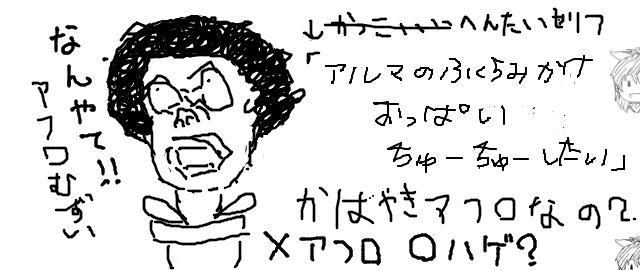 なんやて!!
アフロむずい
↓かっこいいへんたいゼリフ
「アルマのふくらみかけ
おっぱい
ちゅーちゅーしたい」
かはやきアフロなの?
×アフロ ロハゲ?